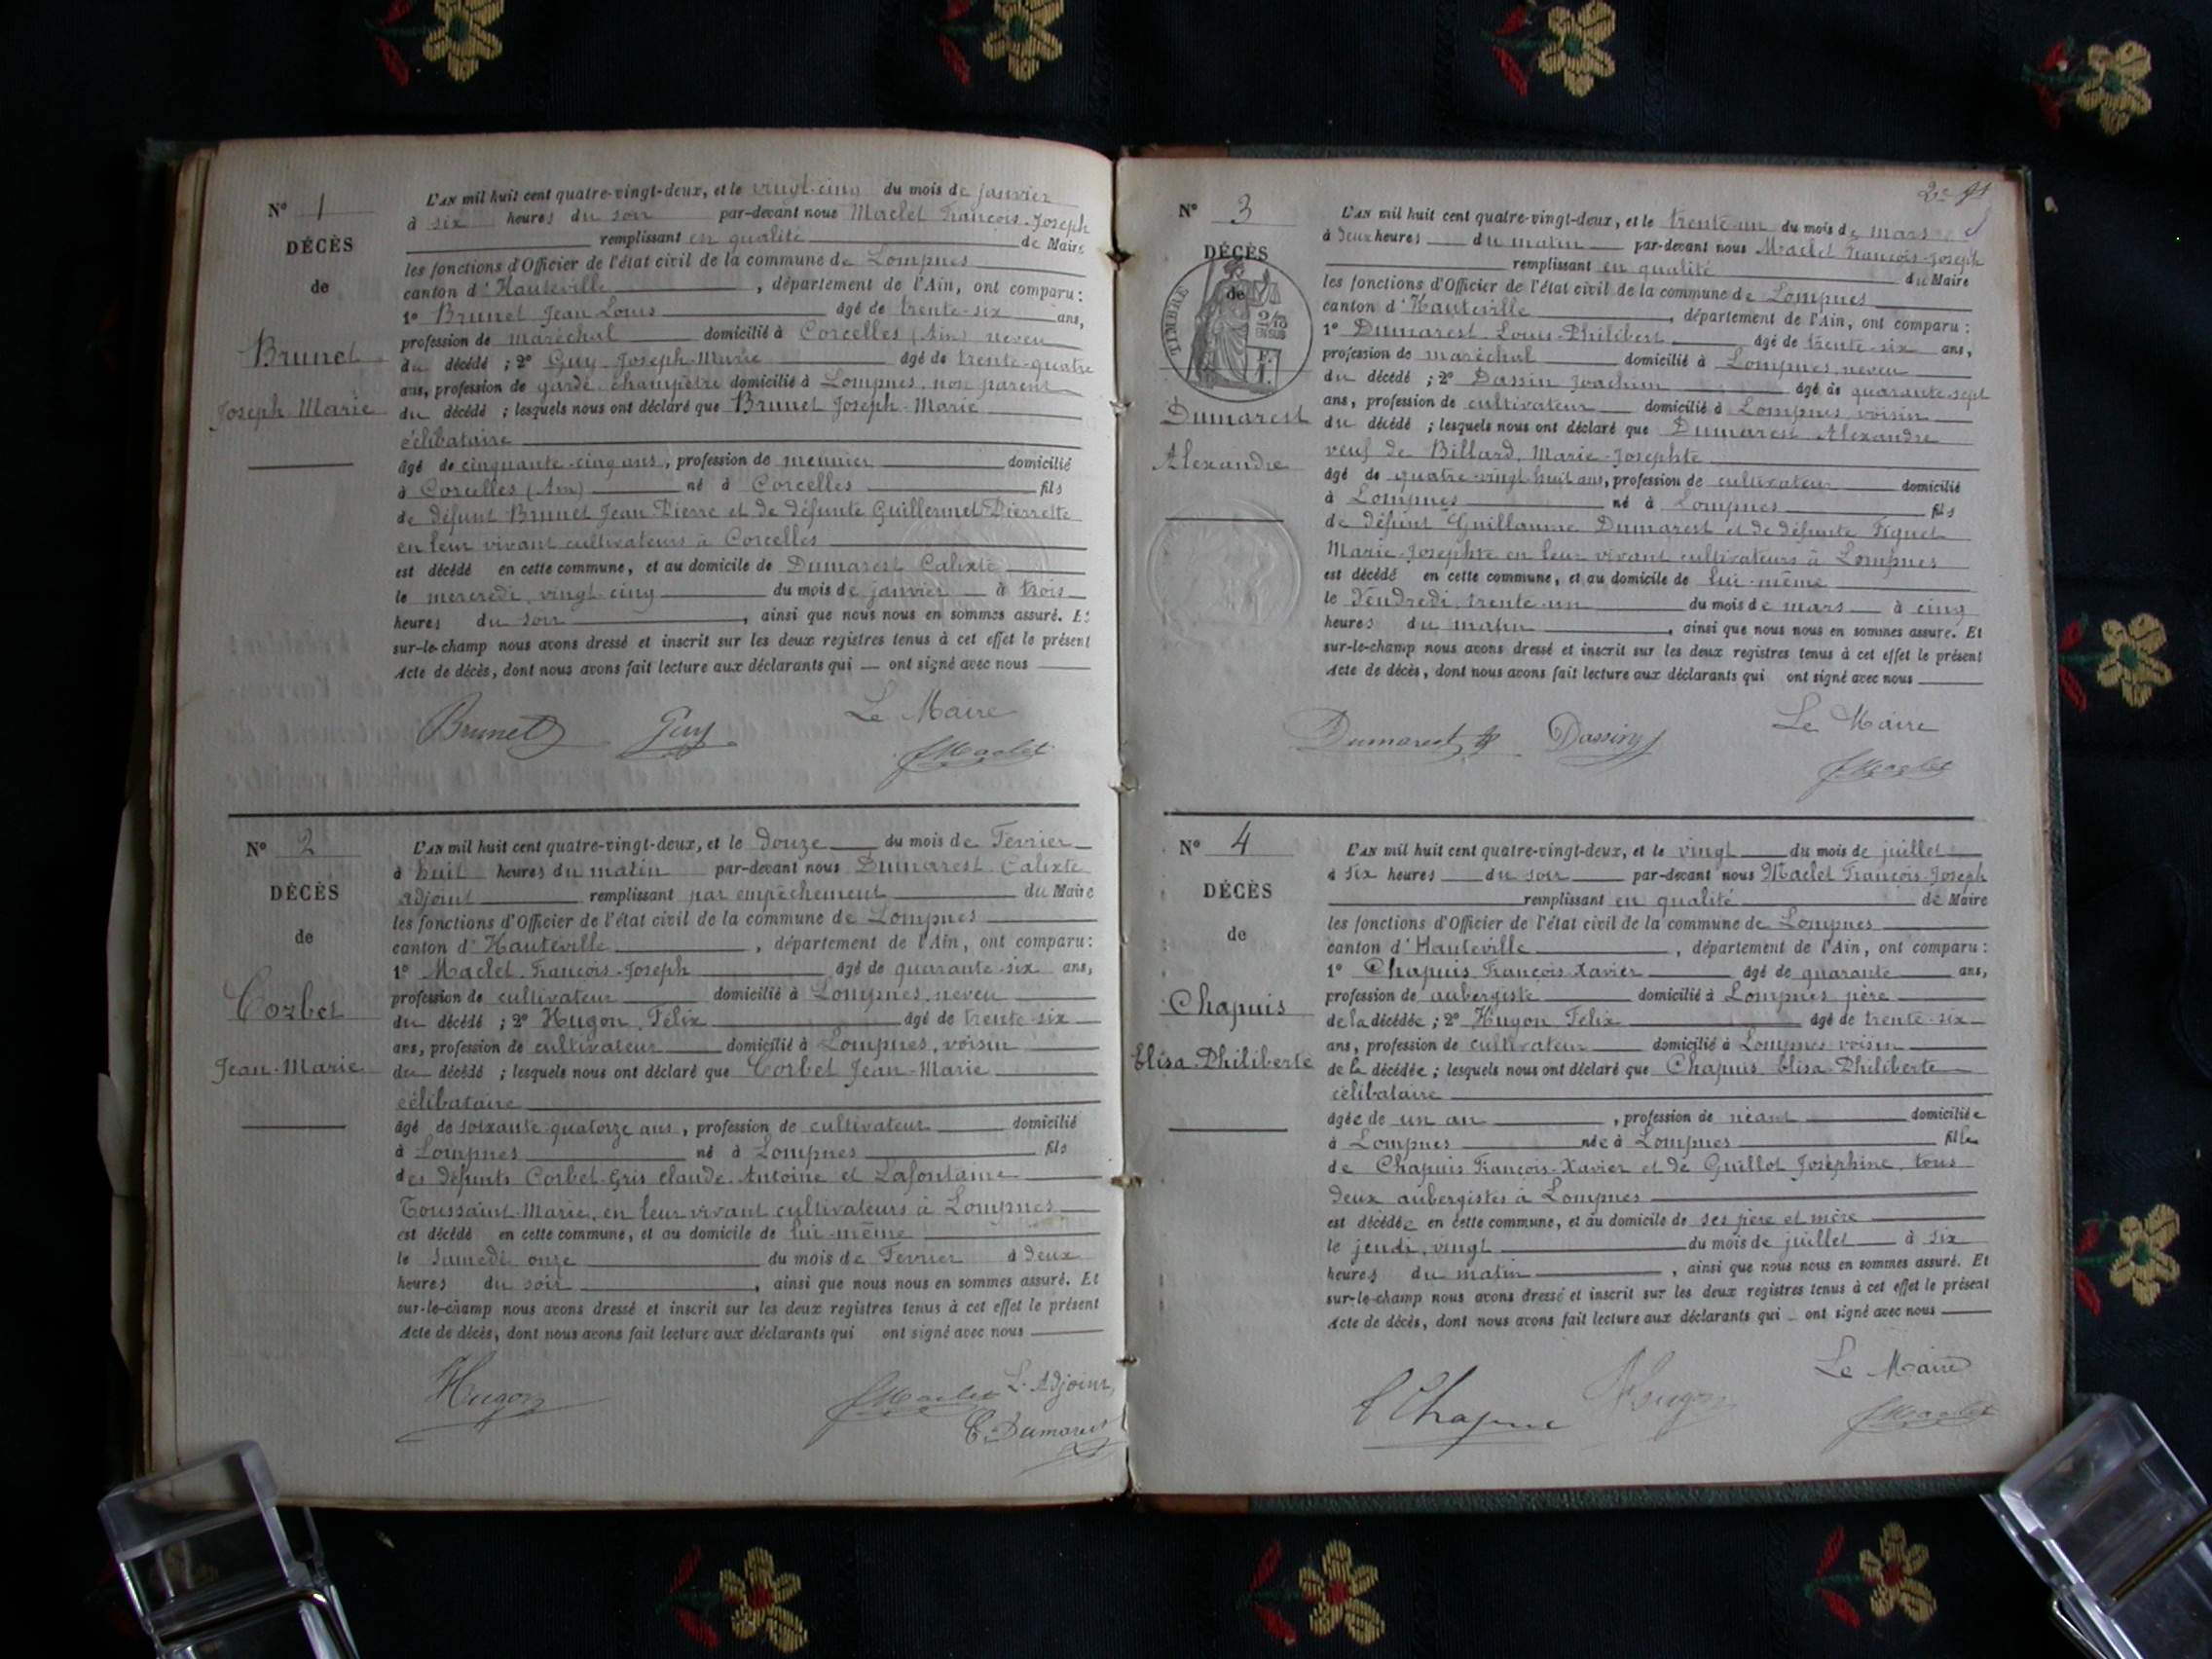 N° 1
DÉCÈS
de
Brunet
Joseph-Marie
L'AN mil huit cent quatre-vingt-deux, et le vingt-cinq du mois de janvier
à six heures du soir par-devant nous Maclet François-Joseph
remplissant en qualité de Maire
les fonctions d'Officier de l'état civil de la commune de Lompnes
canton d'Hauteville, département de l'Ain, ont comparu :
1° Brunet Jean Louis âgé de trente-six ans,
profession de maréchal domicilié à Corcelles (Ain) neveu
du décédé ; 2° Guy Joseph-Marie âgé de trente-quatre
ans, profession de garde champêtre domicilié à Lompnes, non parent
du décédé ; lesquels nous ont déclaré que Brunet Joseph-Marie
célibataire
âgé de cinquante-cinq ans, profession de meunier domicilié
à Corcelles (Ain) né à Corcelles fils
de défunt Brunet Jean Pierre et de défunte Guillermet Pierrette
en leur vivant cultivateurs à Corcelles
est décédé en cette commune, et au domicile de Dumarest Calixte
le mercredi, vingt-cinq du mois de janvier à trois
heures du soir, ainsi que nous nous en sommes assuré. Et
sur-le-champ nous avons dressé et inscrit sur les deux registres tenus à cet effet le présent
Acte de décès, dont nous avons fait lecture aux déclarants qui ont signé avec nous
Brunet Guy Le Maire
Maclet
N° 2
DÉCÈS
de
Corbet
Jean-Marie
L'AN mil huit cent quatre-vingt-deux, et le douze du mois de Fevrier
à huit heures du matin par-devant nous Dumarest Calixte
adjoint remplissant par empêchement du Maire
les fonctions d'Officier de l'état civil de la commune de Lompnes
canton d'Hauteville, département de l'Ain, ont comparu :
1° Maclet François-Joseph âgé de quarante-six ans,
profession de cultivateur domicilié à Lompnes, neveu
du décédé ; 2° Hugon, Félix âgé de trente-six
ans, profession de cultivateur domicilié à Lompnes, voisin
du décédé ; lesquels nous ont déclaré que Corbet Jean-Marie
célibataire
âgé de soixante-quatorze ans, profession de cultivateur domicilié
à Lompnes né à Lompnes fils
des défunts Corbet-Gris Claude-Antoine et Lafontaine
Toussaint-Marie, en leur vivant cultivateurs à Lompnes
est décédé en cette commune, et au domicile de lui-même
le Samedi onze du mois de Fevrier à deux
heures du soir, ainsi que nous nous en sommes assuré. Et
sur-le-champ nous avons dressé et inscrit sur les deux registres tenus à cet effet le présent
Acte de décès, dont nous avons fait lecture aux déclarants qui ont signé avec nous
Hugon Maclet L'Adjoint,
C. Dumarest
N° 3
DÉCÈS
de
TIMBRE
2/10
EN SUS
Dumarest
Alexandre
L'AN mil huit cent quatre-vingt-deux, et le trente-un du mois de mars
à deux heures du matin par-devant nous Maclet François-Joseph
remplissant en qualité du Maire
les fonctions d'Officier de l'état civil de la commune de Lompnes
canton d'Hauteville, département de l'Ain, ont comparu :
1° Dumarest Louis-Philibert âgé de trente-six ans,
profession de maréchal domicilié à Lompnes, neveu
du décédé ; 2° Dassin Joachim âgé de quarante-sept
ans, profession de cultivateur domicilié à Lompnes, voisin
du décédé ; lesquels nous ont déclaré que Dumarest Alexandre
veuf de Billard, Marie-Josephte
âgé de quatre-vingt-huit ans, profession de cultivateur domicilié
à Lompnes né à Lompnes fils
de défunt Guillaume Dumarest et de défunte
Marie-Josephte en leur vivant cultivateurs à Lompnes
est décédé en cette commune, et au domicile de lui-même
le Vendredi, trente-un du mois de mars à cinq
heures du matin, ainsi que nous nous en sommes assuré. Et
sur-le-champ nous avons dressé et inscrit sur les deux registres tenus à cet effet le présent
Acte de décès, dont nous avons fait lecture aux déclarants qui ont signé avec nous
Dumarest Dassin Le Maire
Maclet
N° 4
DÉCÈS
de
Chapuis
Elisa-Philiberte
L'AN mil huit cent quatre-vingt-deux, et le vingt du mois de juillet
à six heures du soir par-devant nous Maclet François-Joseph
remplissant en qualité de Maire
les fonctions d'Officier de l'état civil de la commune de Lompnes
canton d'Hauteville, département de l'Ain, ont comparu :
1° Chapuis François-Xavier âgé de quarante ans,
profession de aubergiste domicilié à Lompnes père
de la décédée ; 2° Hugon Félix âgé de trente-six
ans, profession de cultivateur domicilié à Lompnes voisin
de la décédée ; lesquels nous ont déclaré que Chapuis Elisa-Philiberte
célibataire
âgée de un an, profession de néant domiciliée
à Lompnes née à Lompnes fille
de Chapuis François-Xavier et de Guillot Joséphine, tous
deux aubergistes à Lompnes
est décédée en cette commune, et au domicile de ses père et mère
le jeudi, vingt du mois de juillet à six
heures du matin, ainsi que nous nous en sommes assuré. Et
sur-le-champ nous avons dressé et inscrit sur les deux registres tenus à cet effet le présent
Acte de décès, dont nous avons fait lecture aux déclarants qui ont signé avec nous
Chapuis Hugon Le Maire
Maclet